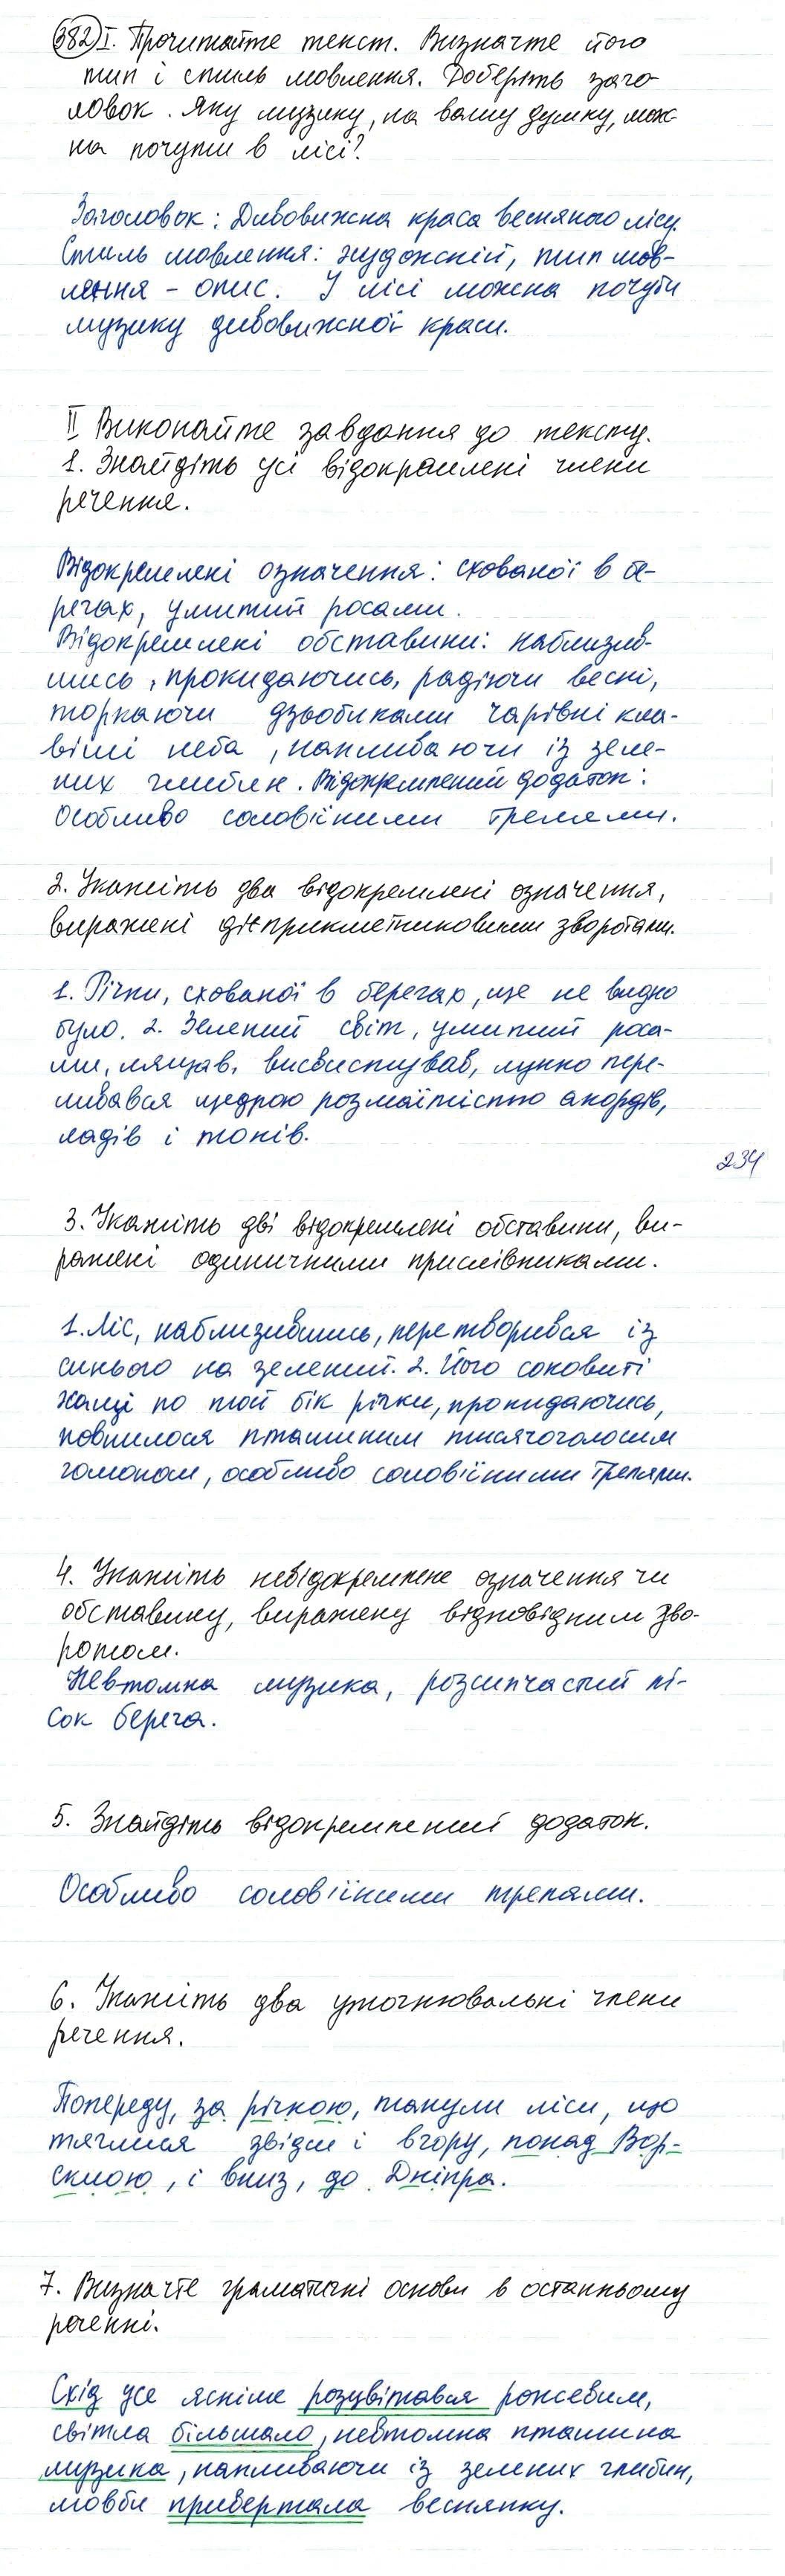 382 I. Прочитайте текст. Визначте його
тип і стиль мовлення. Доберіть заго-
ловок. Яку музику, на вашу думку, мож-
на почути в лісі?
Заголовок: Дивовижна краса весняного лісу.
Стиль мовлення: художній, тип мов-
лення - опис. У лісі можна почути
музику дивовижної краси.
II Виконайте завдання до тексту.
1. Знайдіть усі відокремлені члени
речення.
Відокремлені означення: схованої в бе-
регах, умитий росами.
Відокремлені обставини: наблизив-
шись, прокидаючись, радіючи весні,
торкаючи дзьобиками чарівні кла-
віші неба, напливаючи із зеле-
них глибин. Відокремлений додаток:
Особливо солов'їними трелями.
2. Укажіть два відокремлені означення,
виражені дієприкметниковими зворотами.
1. Річки, схованої в берегах, ще не видно
було. 2. Зелений світ, умитий роса-
ми, лящав, висвистував, лунко пере-
ливався щедрою розмаїтістю акордів,
ладів і тонів.
234
3. Укажіть дві відокремлені обставини, ви-
ражені одиничними прислівниками.
1. Ліс, наблизившись, перетворився із
синього на зелений. 2. Його соковиті
хащі по той бік річки, прокидаючись,
повнилося пташиним тисячоголосим
гомоном, особливо солов'їними трелями.
4. Укажіть невідокремлене означення чи
обставину, виражену відповідним зво-
ротом.
Невтомна музика, розсипчастий пі-
сок берега.
5. Знайдіть відокремлений додаток.
Особливо солов'їними трелями.
6. Укажіть два уточнювальні члени
речення.
Попереду, за річкою, танули ліси, що
тяглися звідси і вгору, понад Вор-
склою, і вниз, до Дніпра.
7. Визначте граматичні основи в останньому
реченні.
Схід усе ясніше розцвітався рожевим,
світла більшало, невтомна пташина
музика, напливаючи із зелених глибин,
мовби привертала веснянку.